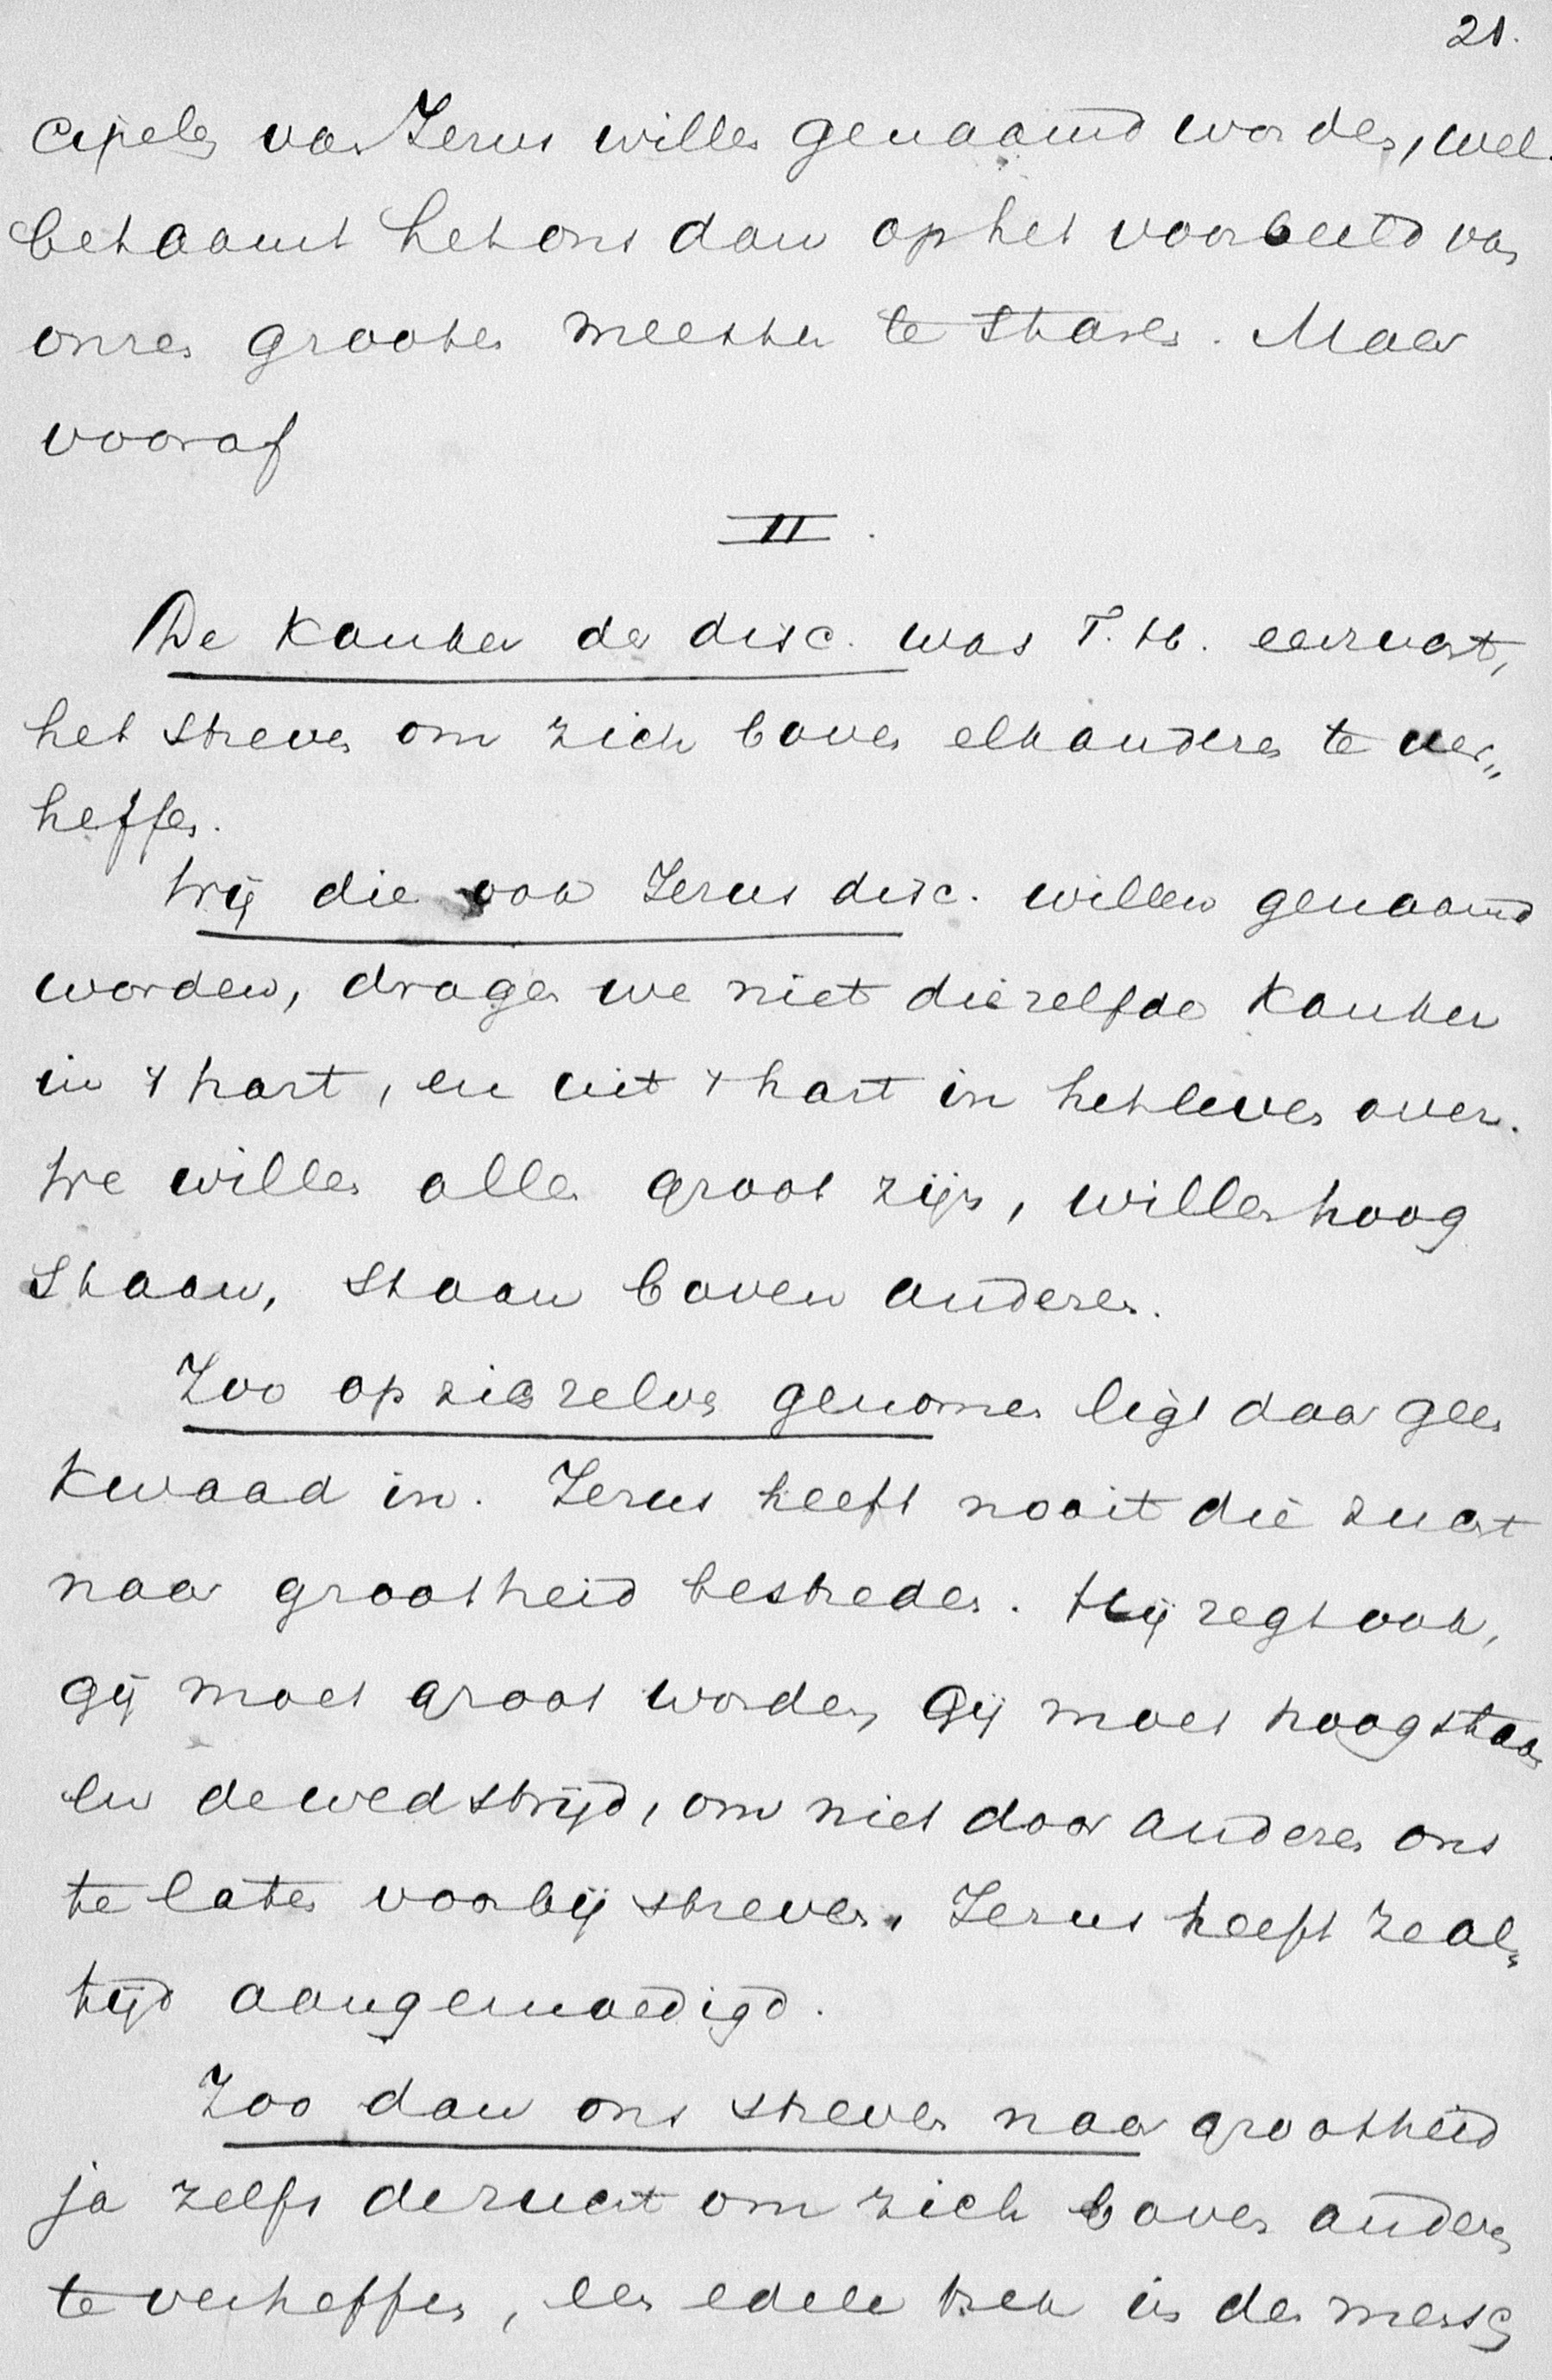 21.
cipelen van Jezus willen genaamd worden, wel
betaamt het ons dan op het voorbeeld van
onzen grooten meester te staren. Maar
vooraf
II.
De Kanker der disc. was T. H. eerzucht,
het streven om zich boven elkanderen te ver„
heffen.
Wij die ook Jezus disc. willen genaamd
worden, dragen we niet diezelfde Kanker
in 't hart, en uit 't hart in het leven over.
We willen allen groot zijn, willen hoog
staan, staan boven anderen.
Zoo op zich zelve genomen ligt daar geen
Kwaad in. Jezus heeft nooit die zucht
naar grootheid bestreden. Hij zegt ook,
gij moet groot worden, Gij moet hoog staan
en de wedstrijd, om niet door anderen ons
te laten voorbij streven, Jezus heeft ze al„
tijd aangemoedigd.
Zoo dan ons streven naar grootheid
ja zelfs de zucht om zich boven anderen
te verheffen, een edele trek in den mensch